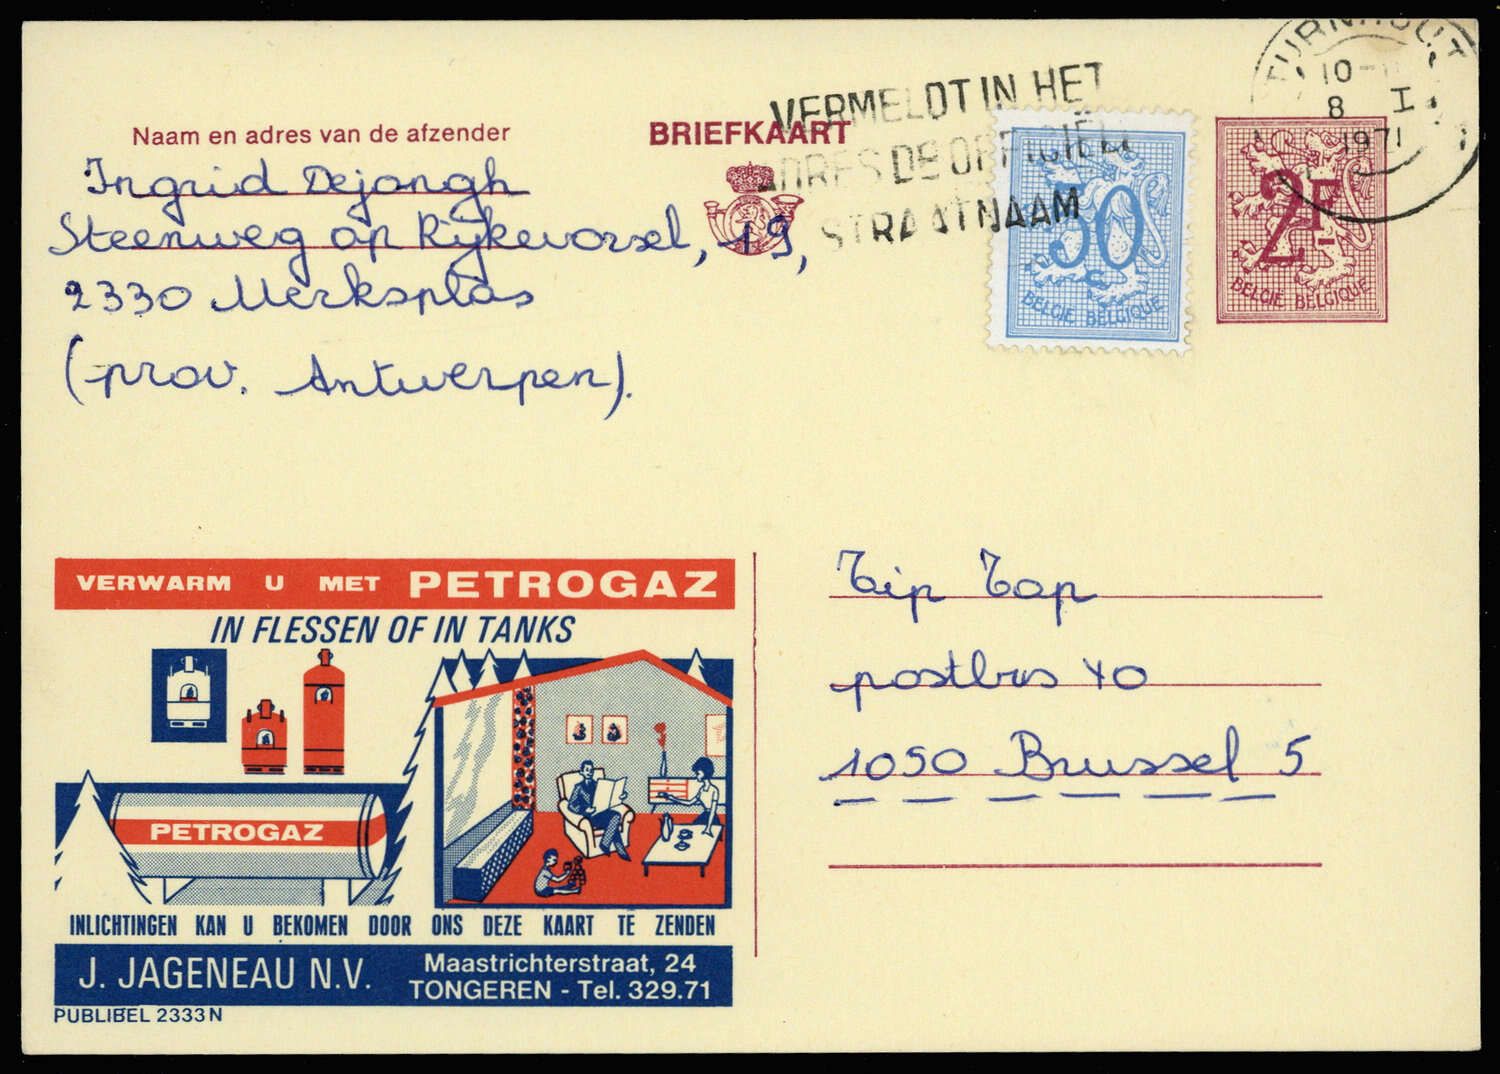 Naam en adres van de afzender
Ingrid Dejongh
Steenweg op Rijkevorsel, 19,
2330 Merksplas
(prov. Antwerpen).
BRIEFKAART
VERMELDT IN HET
ADRES DE OFFICIËLE
STRAATNAAM
50
BELGIË BELGIQUE
2F
BELGIË BELGIQUE
TURNHOUT
10-
8 I
1971
VERWARM U MET PETROGAZ
IN FLESSEN OF IN TANKS
PETROGAZ
INLICHTINGEN KAN U BEKOMEN DOOR ONS DEZE KAART TE ZENDEN
J. JAGENEAU N.V.
Maastrichterstraat, 24
TONGEREN - Tel. 329.71
PUBLIBEL 2333 N
Tip Top
postbus 40
1050 Brussel 5